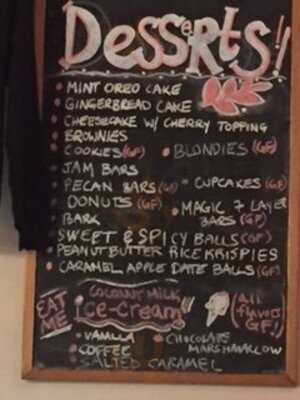 Desserts!
• MINT OREO CAKE
• GINGERBREAD CAKE
• CHEESECAKE W/ CHERRY TOPPING
• BROWNIES
• COOKIES (GF) • BLONDIES (GF)
JAM BARS
• PECAN BARS (GF) • CUPCAKES (GF)
• DONUTS (GF) • MAGIC 7 LAYER
• BARK BARS (GF)
SWEET & SPICY BALLS (GF)
• PEANUT BUTTER RICE KRISPIES
• CARAMEL APPLE DATE BALLS (GF)
EAT ME COCONUT MILK ice-cream (all flavors GF!)
• VANILLA • CHOCOLATE
• COFFEE MARSHMALLOW
• SALTED CARAMEL